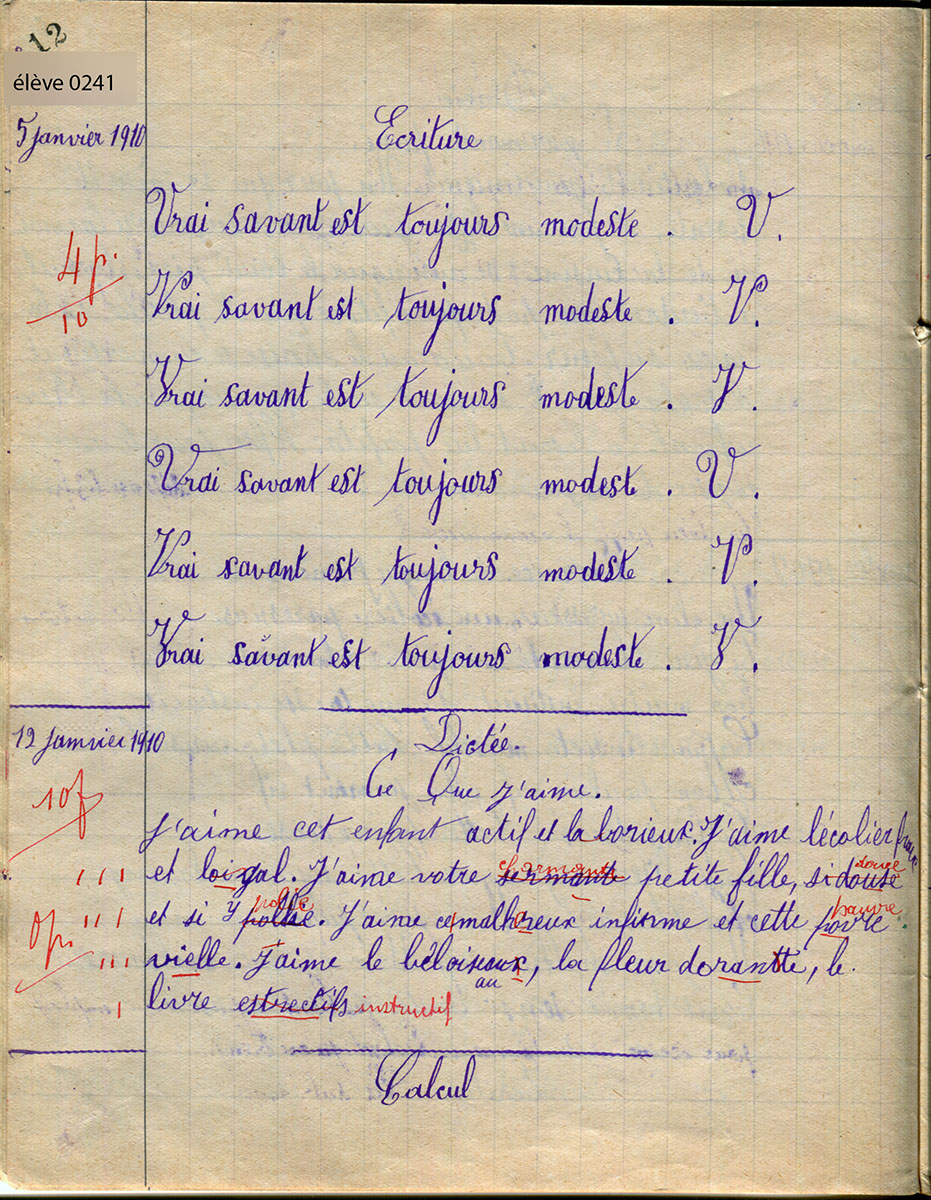 12
élève 0241
5 janvier 1910
Ecriture
Vrai savant est toujours modeste. V.
4 p.
10
Vrai savant est toujours modeste. V.
Vrai savant est toujours modeste. V.
Vrai savant est toujours modeste. V.
Vrai savant est toujours modeste. V.
Vrai savant est toujours modeste. V.
12 janvier 1910
Dictée.
Ce Que j'aime.
10f
J'aime cet enfant actif et la borieux. J'aime l'écolier
charmante douce
et loigal. J'aime votre sermante petite fille, si douse
polie pauvre
et si y pollie. J'aime ce malhereux infirme et cette povre
0 p.
vielle. J'aime le bêloiseaux, la fleur dorantte, le
au
livre estrectifs instructif
Calcul